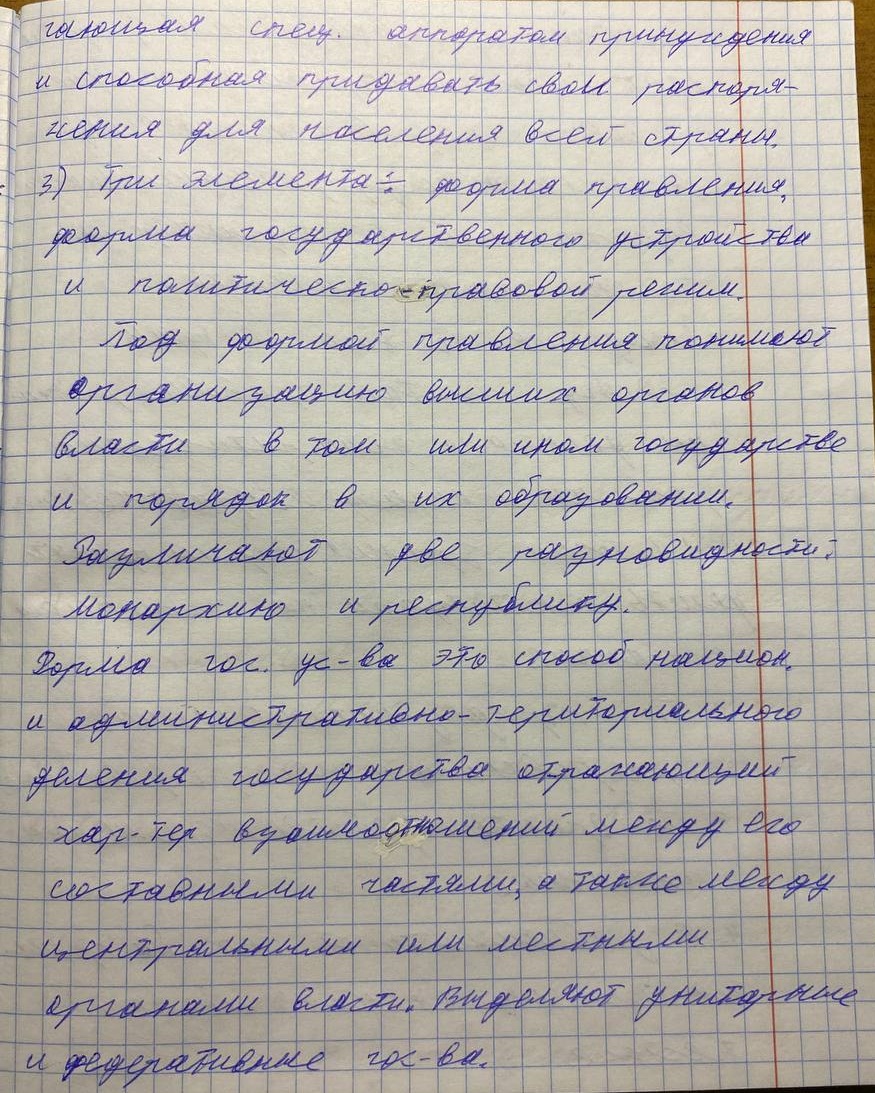 гающая спец. аппаратом принуждения
и способная придавать свои распоря-
жения для населения всей страны.
3) Три элемента: форма правления,
форма государственного устройства
и политическо-правовой режим.
Под формой правления понимают
организацию высших органов
власти в том или ином государстве
и порядок в их образовании.
Различают две разновидности:
монархию и республику.
Форма гос. ус-ва это способ национ.
и административно-териториального
деления государства отражающий
хар-тер взаимоотношений между его
составными частями, а также между
центральными или местными
органами власти. Выделяют унитарные
и федеративные гос-ва.